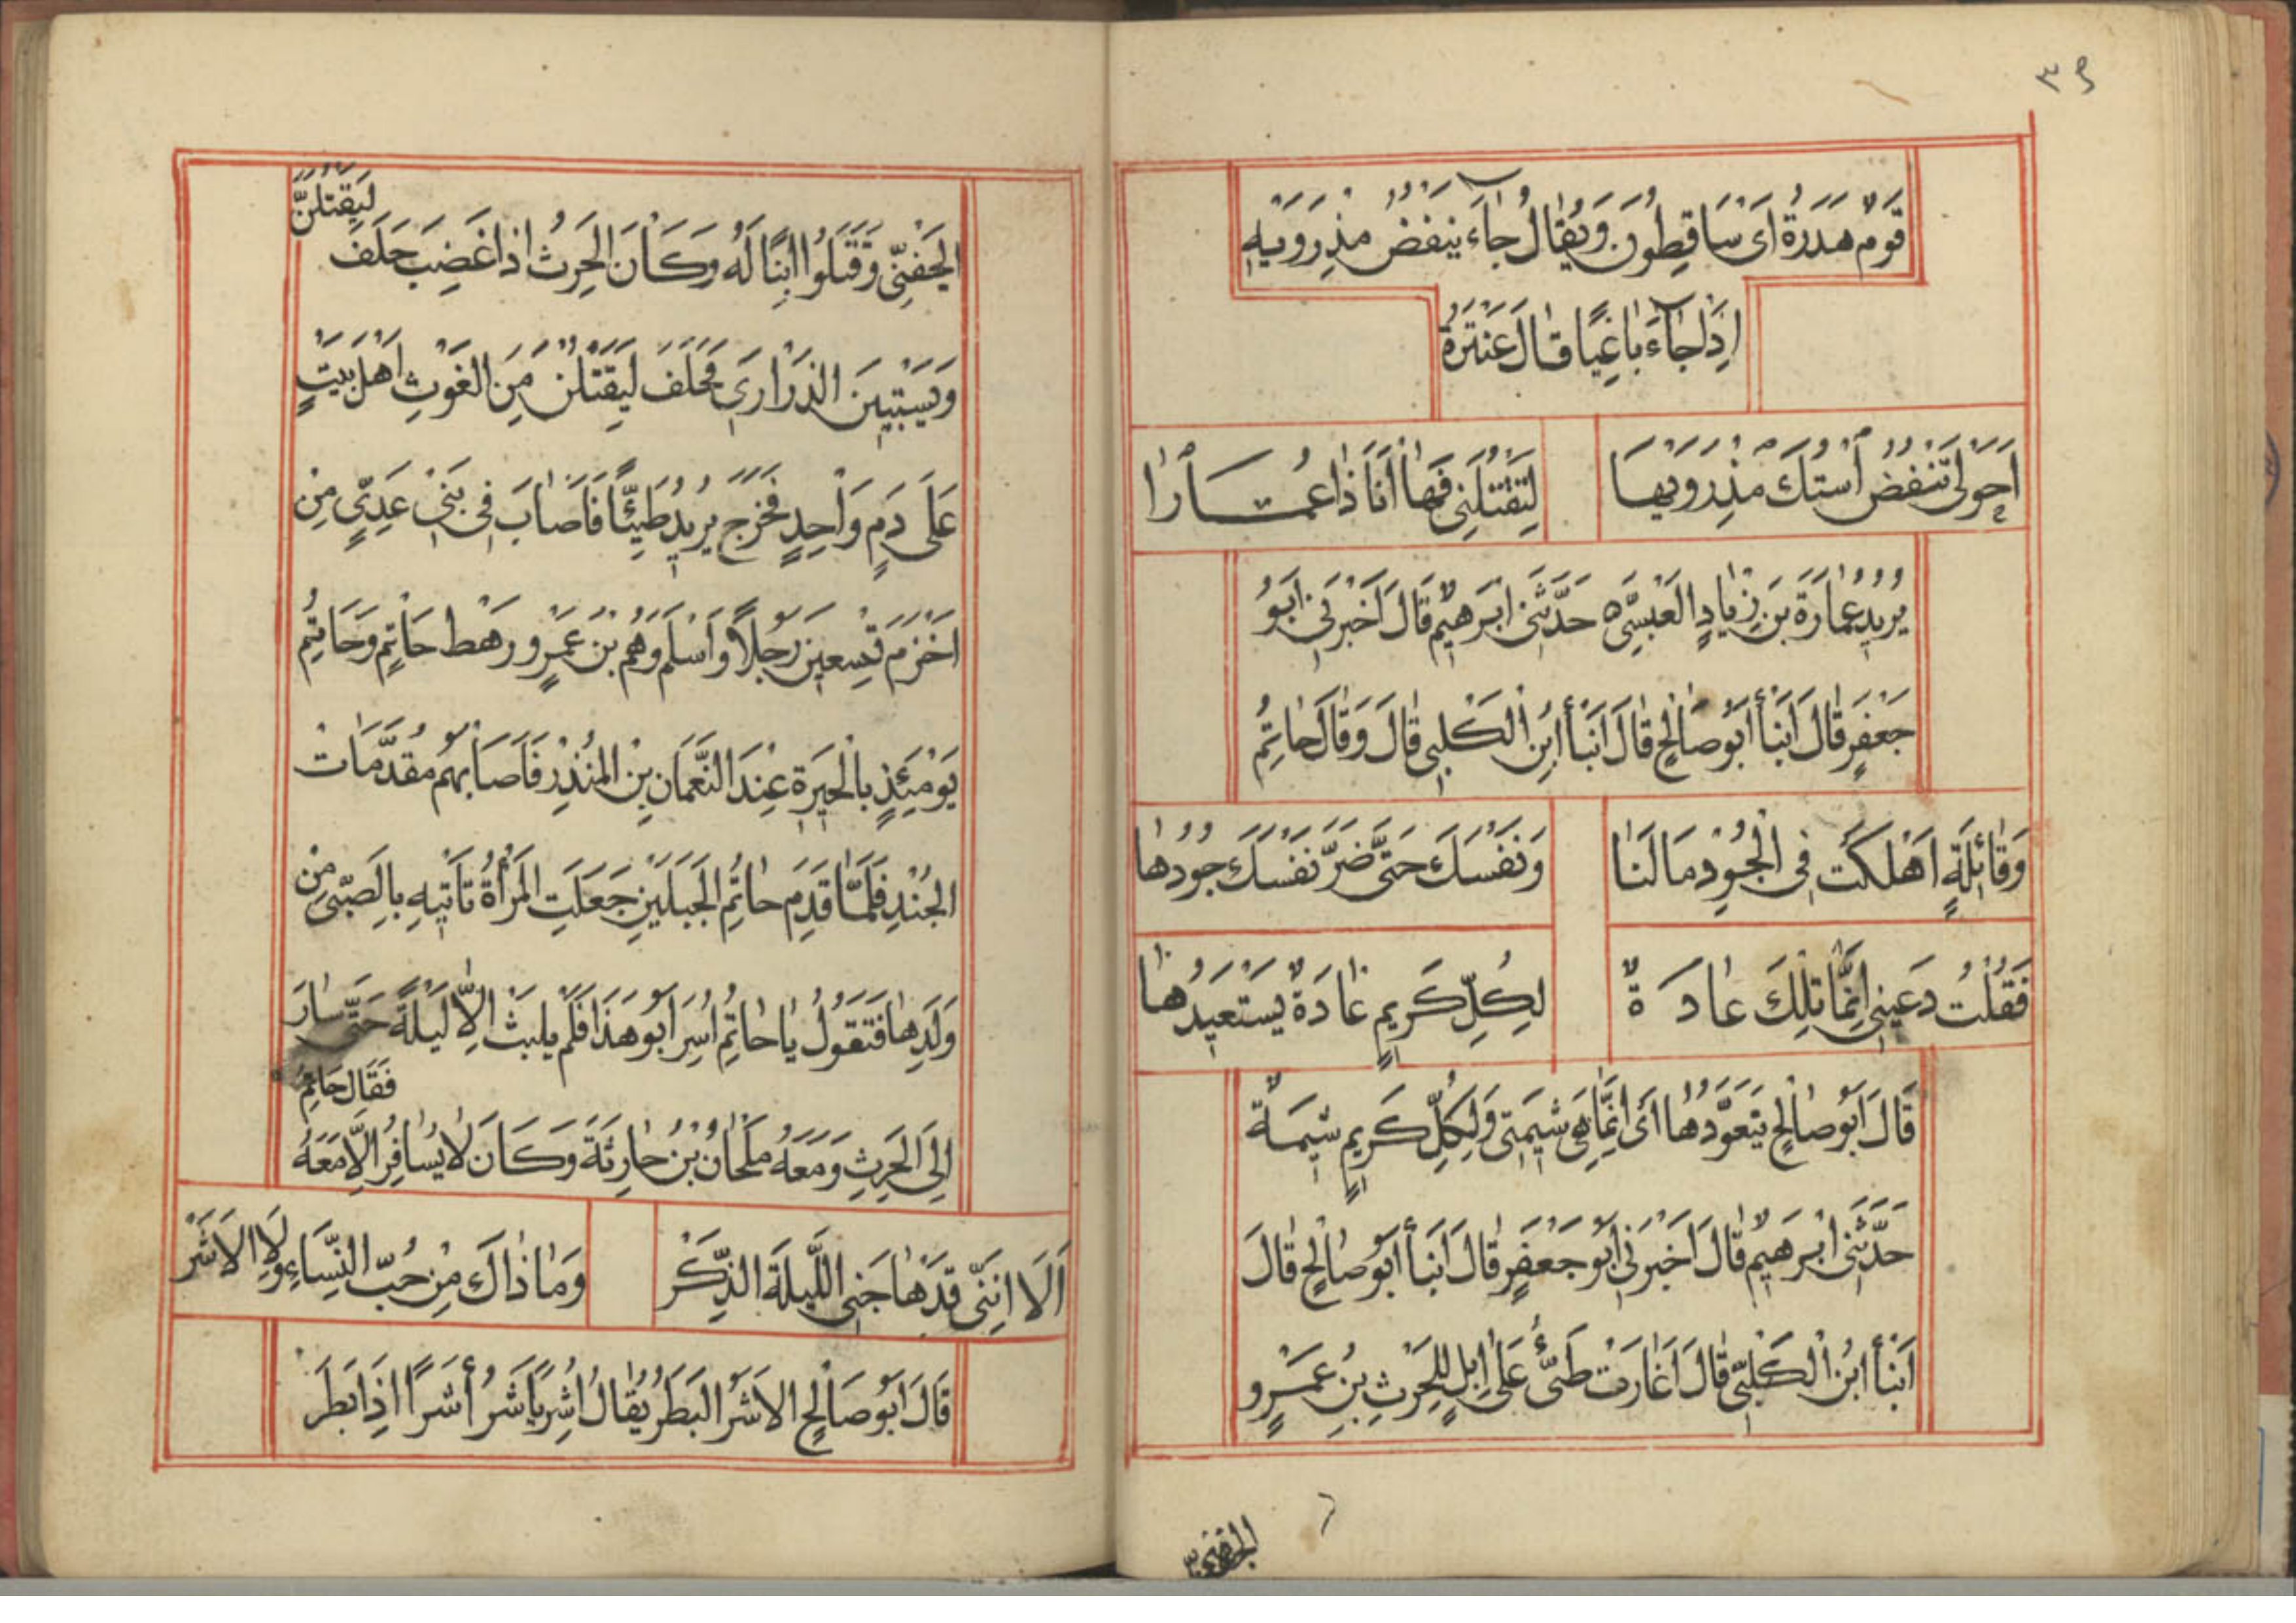 ٣٩
قَوْمٌ هَدَرَةٌ اَىْ سَاقِطُونَ وَيُقَالُ جَآءَ يَنْفُضُ مِذْرَوَيْهِ
اِذَا جَآءَ بَاغِيًا قَالَ عَنْتَرَةُ
اَحَوْلِى تَنْفُضُ اسْتُكَ مِذْرَوَيْهَا
لِتَقْتُلَنِى فَهَا اَنَا ذَا عُمَارَا
يُرِيدُ عُمَارَةَ بْنَ زِيَادٍ الْعَبْسِىَّ ه حَدَّثَنِى اِبْرَهِيمُ قَالَ اَخْبَرَنِى اَبُو
جَعْفَرٍ قَالَ اَنْبَأَ اَبُو صَالِحٍ قَالَ اَنْبَأَ ابْنُ الْكَلْبِى قَالَ وَقَالَ حَاتِمُ
وَقَائِلَةٍ اَهْلَكْتَ فِى الْجُودِ مَالَنَا
وَنَفْسَكَ حَتَّى ضَرَّ نَفْسَكَ جُودُهَا
فَقُلْتُ دَعِينِى اِنَّمَا تِلْكَ عَادَةٌ
لِكُلِّ كَرِيمٍ عَادَةٌ يَسْتَعِيدُهَا
قَالَ اَبُو صَالِحٍ يَتَعَوَّدُهَا اَىْ اِنَّمَا هِىَ شِيمَتِى وَلِكُلِّ كَرِيمٍ شِيمَةٌ
حَدَّثَنِى اِبْرَهِيمُ قَالَ اَخْبَرَنِى اَبُو جَعْفَرٍ قَالَ اَنْبَأَ اَبُو صَالِحٍ قَالَ
اَنْبَأَ ابْنُ الْكَلْبِىِّ قَالَ اَغَارَتْ طَىِّءُ عَلَى اِبِلٍ لِلْحَرِثِ بْنِ عَمْرٍو
الجفنى
لَيَقْتُلَنَّ
الْجَفْنِىِّ وَقَتَلُوا ابْنًا لَهُ وَكَانَ الْحَرِثُ اِذَا غَضِبَ حَلَفَ
وَيَسْتَبِيَنَّ الذَّرَارِىَ فَحَلَفَ لَيَقْتُلَنَّ مِنَ الْغَوْثِ اَهْلَ بَيْتٍ
عَلَى دَمٍ وَاحِدٍ فَخَرَجَ يُرِيدُ طَيِّئًا فَاَصَابَ فِى بَنِى عَدِىٍّ مِنْ
اَخْزَمَ تِسْعِينَ رَجُلًا وَاَسْلَمَ وَهْمُ بْنُ عَمْرٍو رَهْطُ حَاتِمٍ وَحَاتِمُ
يَوْمَئِذٍ بِالْحِيرَةِ عِنْدَ النُّعْمَانِ بْنِ الْمُنْذِرِ فَاَصَابَهُمْ مُقَدَّمَاتُ
الْجُنْدِ فَلَمَّا قَدِمَ حَاتِمُ الْجَبَلَيْنِ جَعَلَتِ الْمَرْأَةُ تَأْتِيهِ بِالصَّبِىِّ مِنْ
وَلَدِهَا فَتَقُولُ يَا حَاتِمُ اُسِرَ اَبُو هَذَا فَلَمْ يَلْبَثْ اِلَّا لَيْلَةً حَتَّى سَارَ
فَقَالَ حَاتِمُ
اِلَى الْحَرِثِ وَمَعَهُ مِلْحَانُ بْنُ حَارِثَةَ وَكَانَ لَا يُسَافِرُ اِلَّا مَعَهُ
اَلَا اِنَّنِى قَدْ هَاجَنِى اللَّيْلَةَ الذِّكَرْ
وَمَا ذَاكَ مِنْ حُبِّ النِّسَاءِ وَلَا الْاَشَرْ
قَالَ اَبُو صَالِحٍ الْاَشَرُ الْبَطَرُ يُقَالُ اَشِرَ يَاْشَرُ أَشَرًا اِذَا بَطَرَ